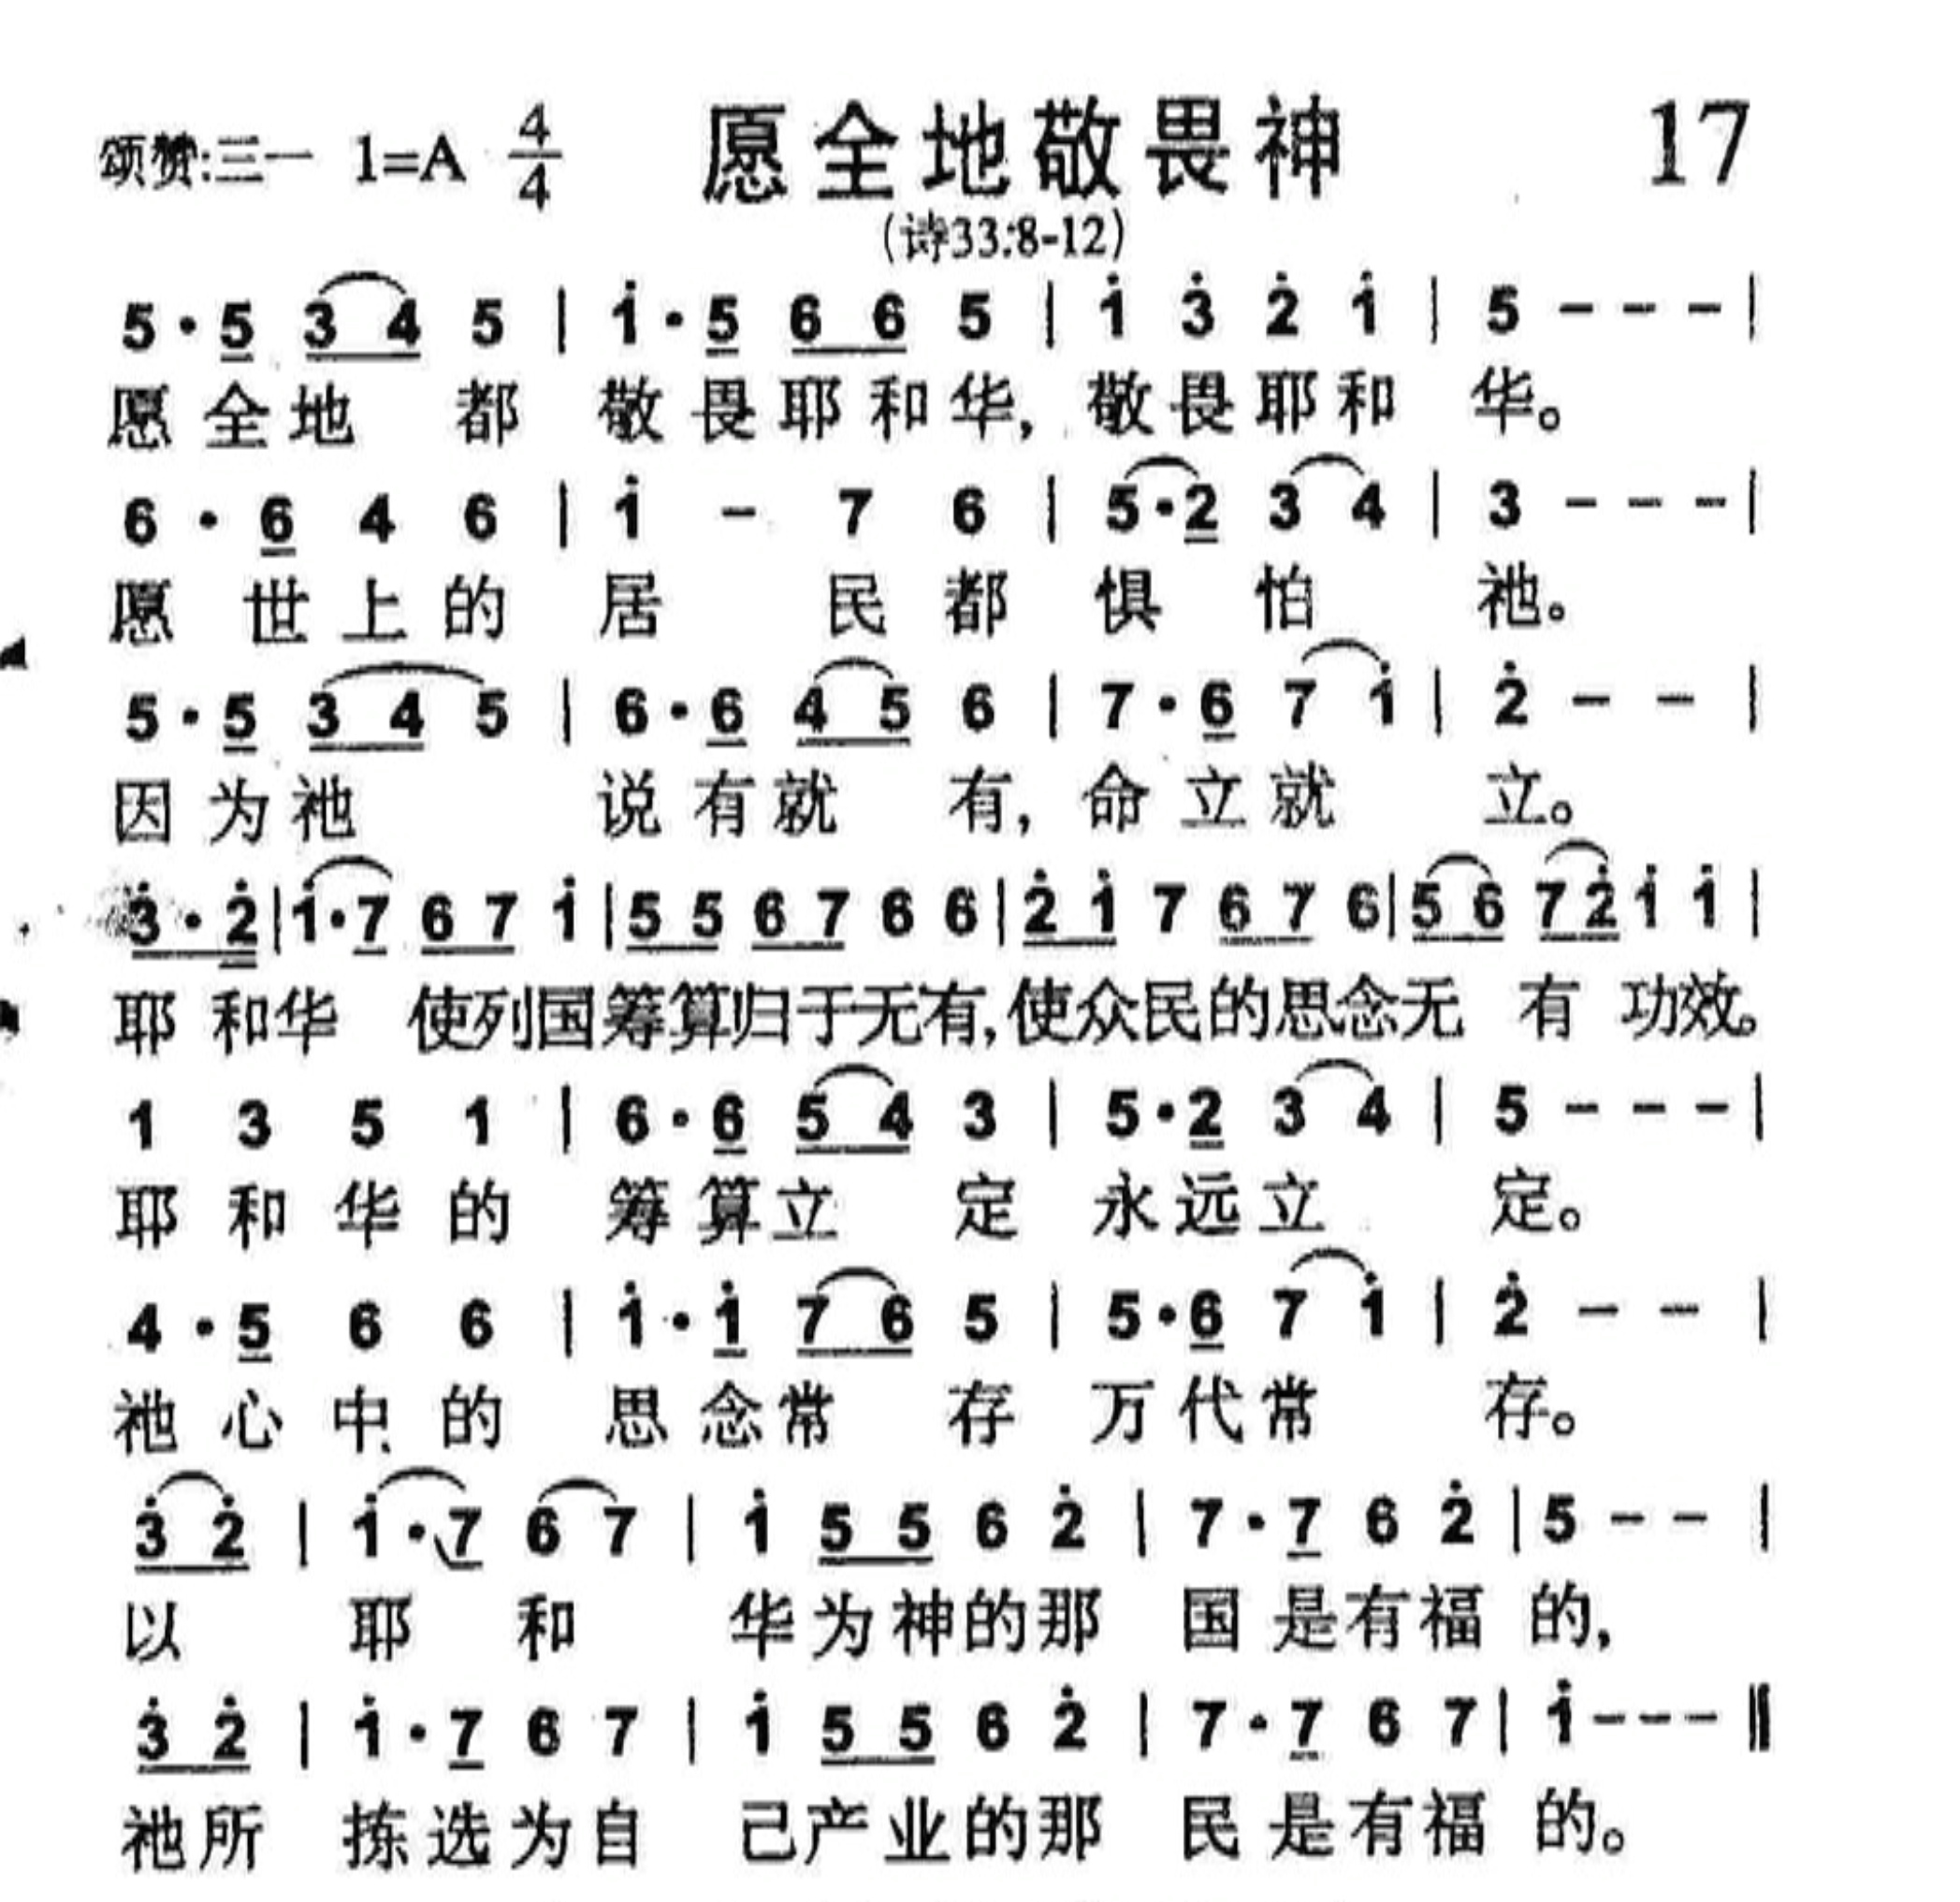 颂赞:三一 1=A 4/4 愿全地敬畏神 17
(诗33:8-12)
5·5 3 4 5 | 1̇·5 6 6 5 | 1̇ 3̇ 2̇ 1̇ | 5 - - - |
愿全地 都 敬畏耶和华, 敬畏耶和 华。
6·6 4 6 | 1̇ - 7 6 | 5·2 3 4 | 3 - - - |
愿世上的 居 民都 惧 怕 祂。
5·5 3 4 5 | 6·6 4 5 6 | 7·6 7 1̇ | 2̇ - - |
因为祂 说有就 有, 命立就 立。
3̇·2̇ | 1̇·7 6 7 1̇ | 5 5 6 7 6 6 | 2̇ 1̇ 7 6 7 6 | 5 6 7 2̇ 1̇ 1̇ |
耶和华 使列国筹算归于无有,使众民的思念无 有 功效。
1 3 5 1 | 6·6 5 4 3 | 5·2 3 4 | 5 - - - |
耶和华的 筹算立 定 永远立 定。
4·5 6 6 | 1̇·1̇ 7 6 5 | 5·6 7 1̇ | 2̇ - - |
祂心中的 思念常 存 万代常 存。
3̇ 2̇ | 1̇·7 6 7 | 1̇ 5 5 6 2̇ | 7·7 6 2̇ | 5 - - |
以 耶 和 华为神的那 国是有福 的,
3̇ 2̇ | 1̇·7 6 7 | 1̇ 5 5 6 2̇ | 7·7 6 7 | 1̇ - - - ‖
祂所 拣选为自 己产业的那 民是有福 的。